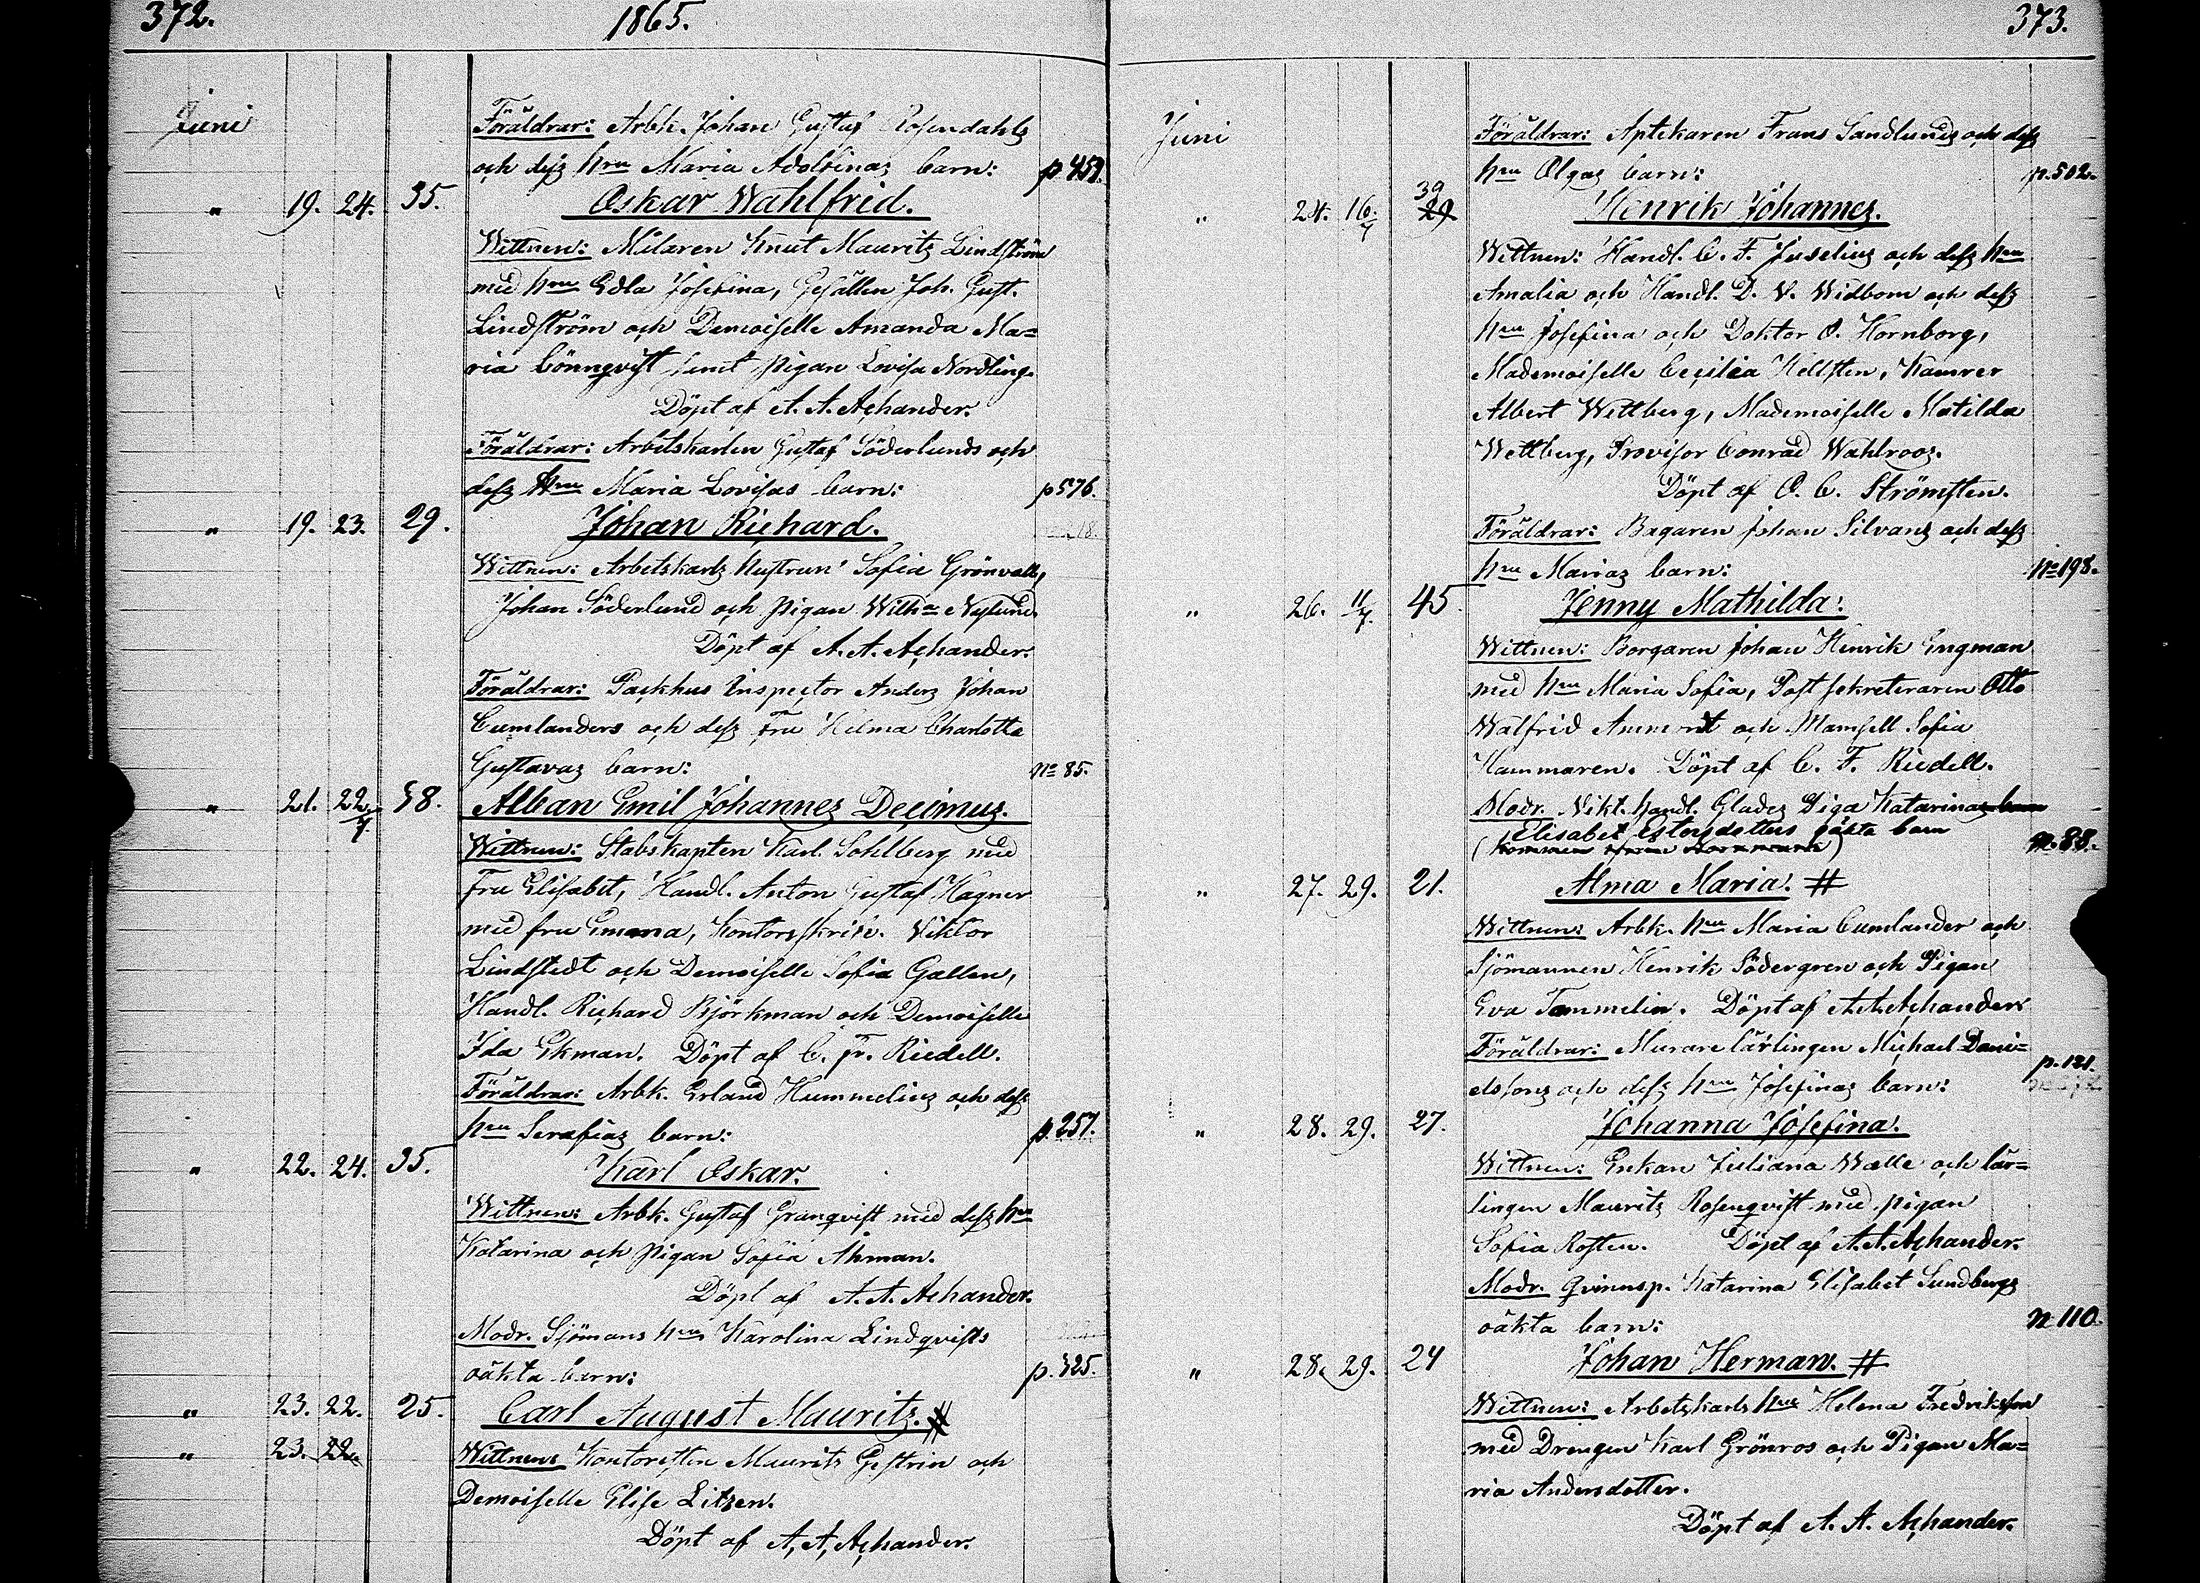 372. 1865.
Juni
Föräldrar: Arbk. Johan Gustaf Rosendahls
och dess hru Maria Adolfinas barn: p 459.
" 19. 24. 35. Oskar Wahlfrid.
Wittnen: Målaren Knut Mauritz Lindström
med hru Edla Josefina, Gesällen Joh. Gust.
Lindström och Demoiselle Amanda Ma=
ria Lönnqvist samt pigan Lovisa Nordling.
Döpt af A. A. Achander.
Föräldrar: Arbetskarlen Gustaf Söderlunds och
dess Hru Maria Lovisas barn: p 576.
" 19. 23. 29. Johan Richard.
Wittnen: Arbetskarls hustrun Sofia Grönvall,
Johan Söderlund och pigan Wilha Nylund.
Döpt af A. A. Achander.
Föräldrar: Packhus Inspector Anders Johan
Cumlanders och dess Fru Hilma Charlotta
Gustavas barn: No 85.
" 21. 22/7. 38. Alban Emil Johannes Decimus.
Wittnen: Stabskapten Karl Sohlberg med
Fru Elisabet, Handl. Anton Gustaf Wagner
med fru Emma, Kontorsskriv. Viktor
Lindstedt och Demoiselle Sofia Gallen,
Handl. Richard Björkman och Demoiselle
Ida Ekman. Döpt af C. Fr. Riedell.
Föräldrar: Arbk. Erland Hummelins och dess
hru Serafias barn: p. 257.
" 22. 24. 35. Karl Oskar.
Wittnen: Arbk. Gustaf Granqvist med dess hru
Katarina och pigan Sofia Ahman.
Döpt af A. A. Achander.
Modr. Sjömans hru Karolina Lindqvists
oäkta barn: p. 325.
" 23. 22. 25. Carl August Mauritz. #
" 23. 22. Wittnen: Kontoristen Mauritz Gestrin och
Demoiselle Elise Litzen.
Döpt af A. A. Achander.
373.
Juni
Föräldrar: Aptekaren Frans Sandlunds och dess
hru Olgas barn: p. 502.
" 24. 16/7 39 29. Henrik Johannes.
Wittnen: Handl. C. F. Juselius och dess hru
Amalia och Handl. D. V. Widbom och dess
hru Josefina och Doktor O. Hornborg,
Mademoiselle Cecilia Hellsten, Kamrer
Albert Wettberg, Mademoiselle Matilda
Wettberg, Provisor Conrad Wahlroos.
Döpt af O. C. Strömsten.
Föräldrar: Bagaren Johan Silvans och dess
hru Marias barn: No 198.
" 26. 11/7. 45. Jenny Mathilda.
Wittnen: Borgaren Johan Henrik Engman
med hru Maria Sofia, Post sekreteraren Otto
Walfrid Ammont och Mamsell Sofia
Hammaren. Döpt af C. F. Riedell.
Modr. Vikt. handl. Glades Piga Katarinas barn
Elisabet Estersdotters oäkta barn
( ) n. 88.
" 27. 29. 21. Alma Maria. #
Wittnen: Arbk. hru Maria Cumlander och
Sjömannen Henrik Södergren och Pigan
Eva Tammelin. Döpt af A. A. Achander.
Föräldrar: Murare lärlingen Michael Dani=
elssons och dess hru Josefinas barn: p. 121.
" 28. 29. 27. Johanna Josefina.
Wittnen: Enkan Juliana Walle och lär=
lingen Mauritz Rosenqvist med pigan
Sofia Rosten. Döpt af A. A. Achander.
Modr. Qvinnsp. Katarina Elisabet Sundbergs
oäkta barn: n 110.
" 28. 29. 24 Johan Herman. #
Wittnen: Arbetskarls hru Helena Fredriksson
med Drengen Karl Grönros och Pigan Ma=
ria Andersdotter.
Döpt af A. A. Achander.